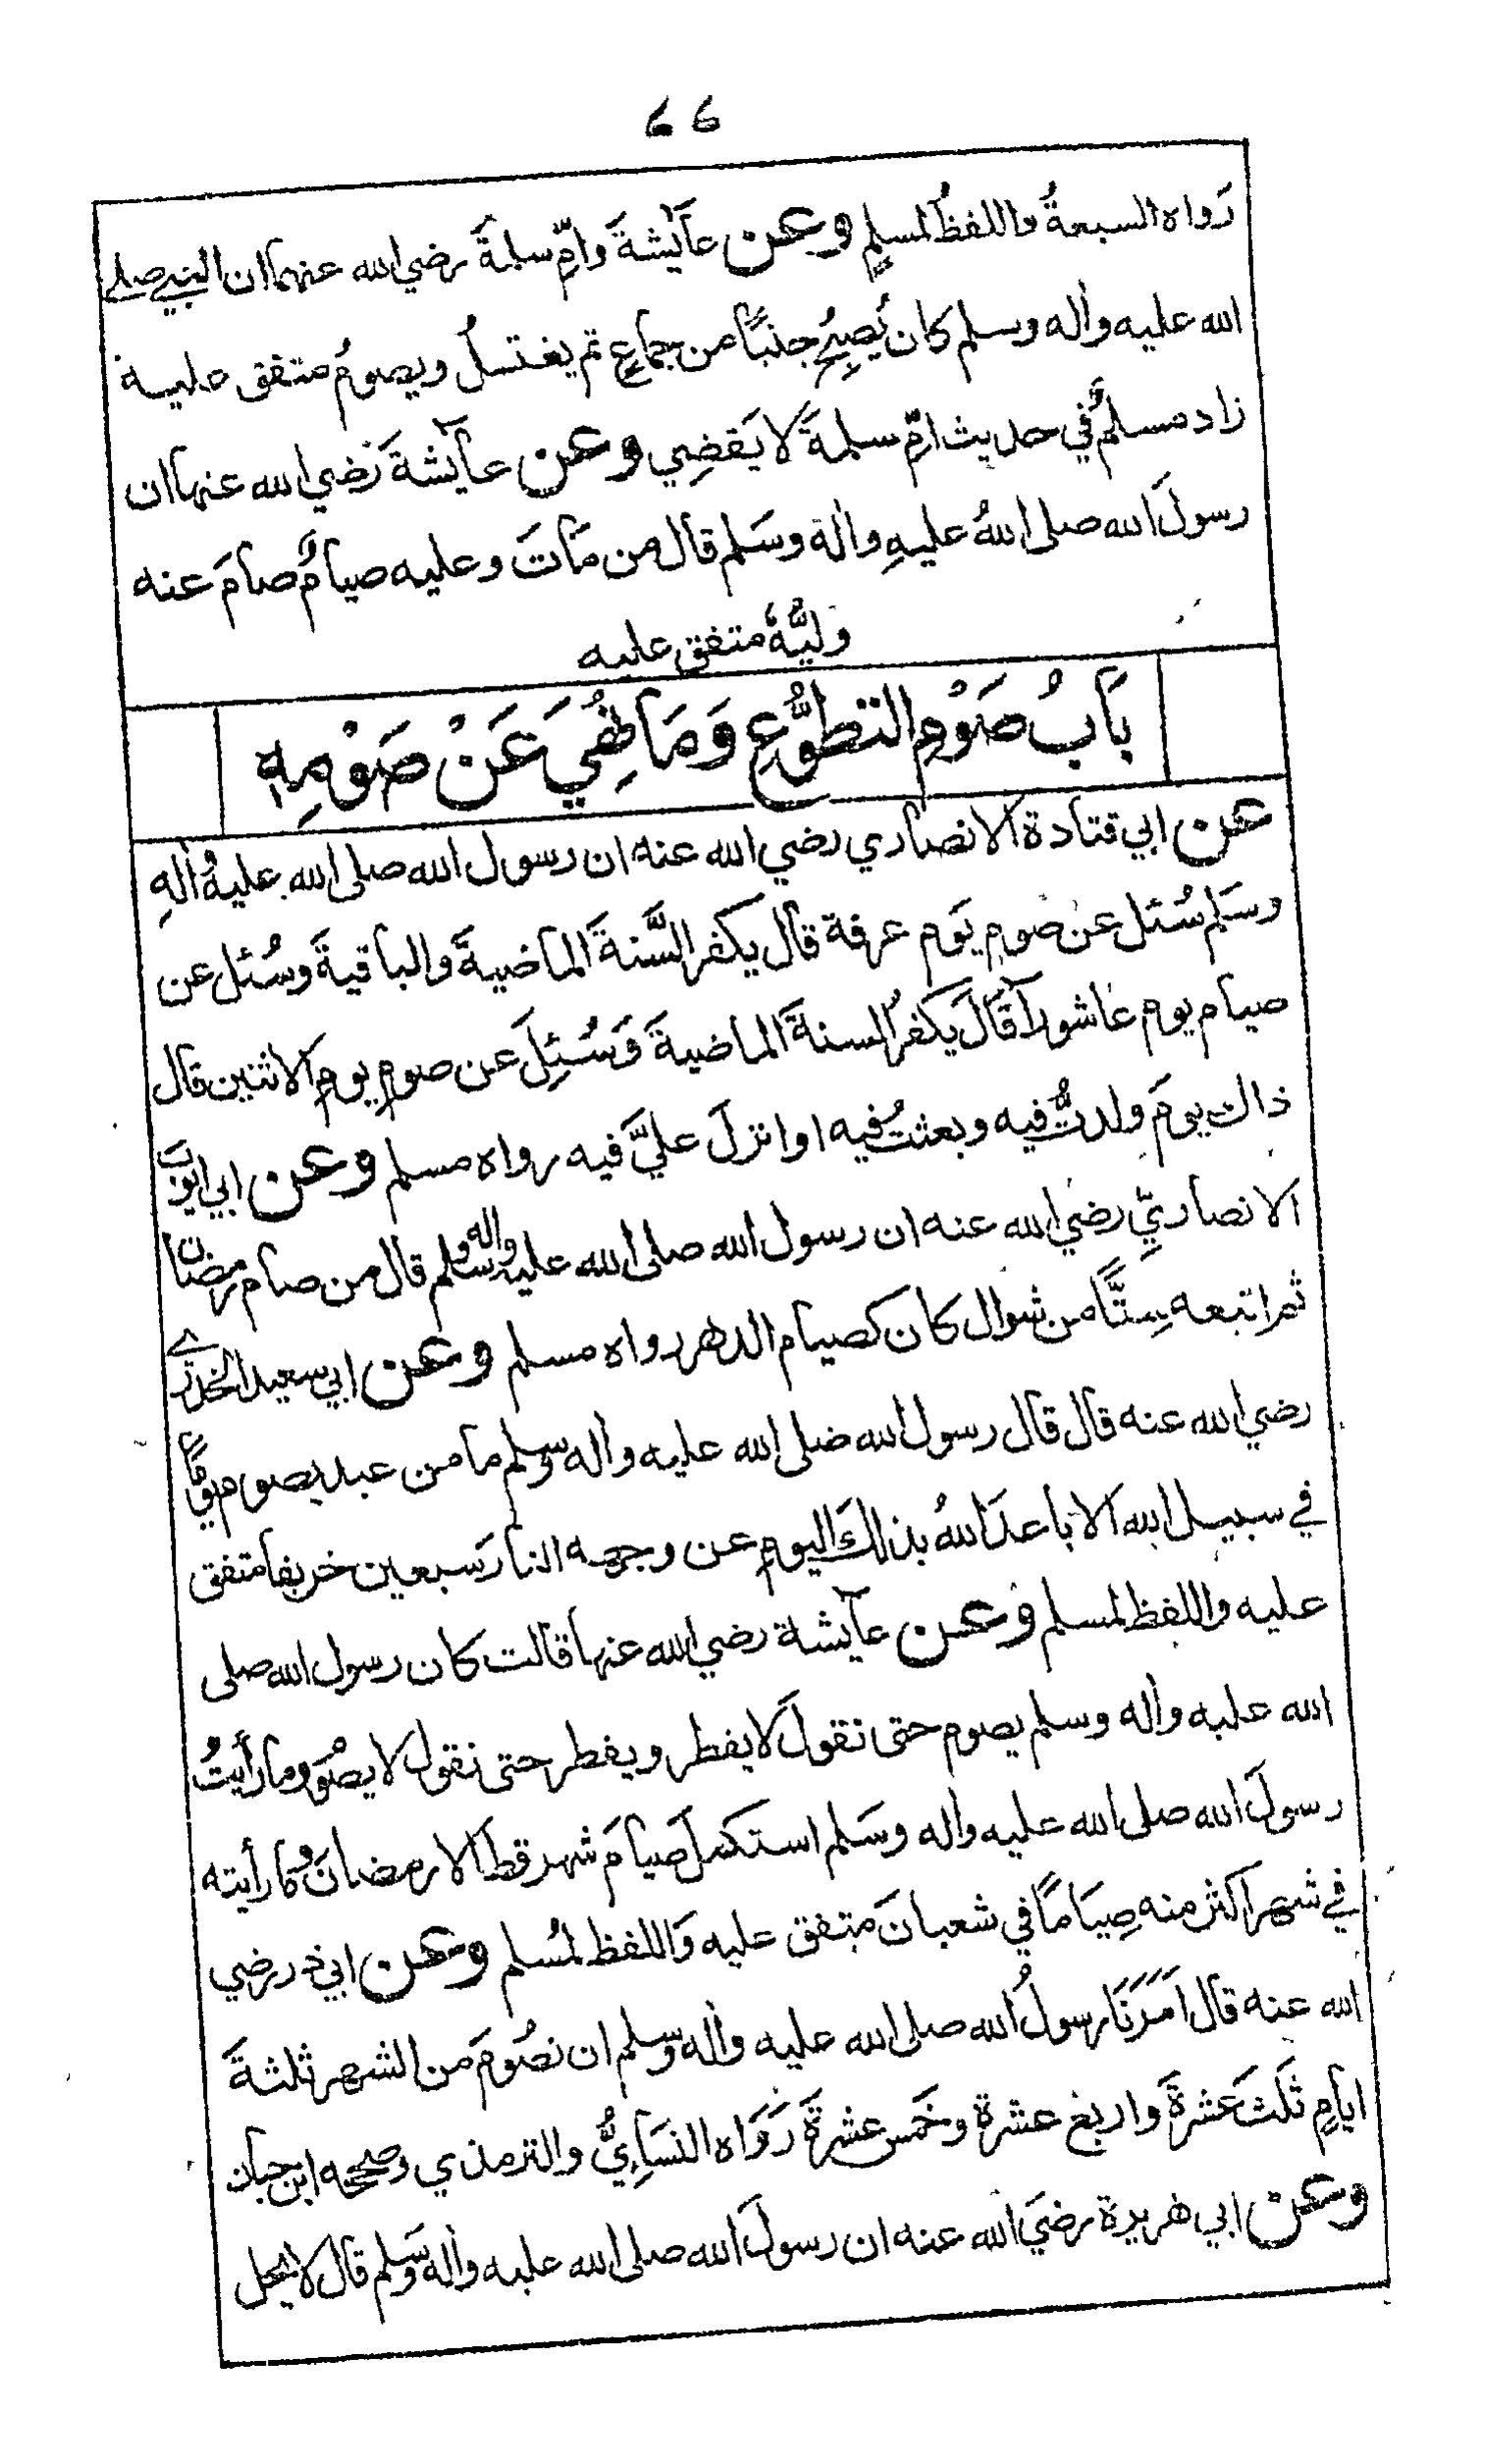 ٦٦
رَواه السبعةُ واللفظُ لمسلمٍ وعن عآيشةَ وامِّ سلمةَ رضي الله عنهما ان النبي صلى
الله عليه واٰله وسلم كان يُصبِحُ جنبًا من جماعٍ ثم يغتسلُ ويصومُ متفق عليه
زاد مسلمٌ في حديث امِّ سلمةَ لا يَقضِي وعن عآيشةَ رَضي الله عنها ان
رسولَ الله صلى اللهُ عليهِ واٰله وسَلم قال من مَاتَ وعليه صيامٌ صامَ عنه
وليُّهُ متفق عليه
بَابُ صَوْمِ التطوُّعِ وَمَا نُهِيَ عَنْ صَوْمِهِ
عن ابي قتادة الانصاري رضي الله عنه ان رسول الله صلى الله عليه واٰلهِ
وسَلم سُئل عن صومِ يَوم عرفة قال يكفر السَّنةَ الماضيةَ والباقيةَ وسُئل عن
صيام يوم عاشورآ قَالَ يكفرُ السنةَ الماضيةَ وَسُئِلَ عن صومِ يومِ الاثنين قال
ذاك يومَ ولدتُ فيه وبعثتُ فيه او انزلَ عليَّ فيه رواه مسلم وعن ابي ايوبَ
الانصاريِّ رضي الله عنه ان رسول الله صلى الله عليه واله وسلم قال من صام رمضان
ثم اتبعه سِتًّا من شوال كان كصيام الدهر رواه مسلم وعن ابي سعيد الخدري
رضي الله عنه قال قال رسول الله صلى الله عليه واٰله وسلم ما من عبد يصوم يومًا
في سبيل الله الا باعدَ اللهُ بذلكَ اليومِ عن وجهه النارَ سبعين خريفا متفق
عليه واللفظ لمسلم وعن عآيشة رضي الله عنها قالت كان رسول الله صلى
الله عليه واٰله وسلم يصوم حتى نقولَ لا يفطر ويفطر حتى نقول لا يصُوم وما رأيتُ
رسولَ الله صلى الله عليه واٰله وسَلم استكملَ صيامَ شهر قط الا رمضانَ وما رأيته
في شهر اكثر منه صِيَامًا في شعبانَ متفق عليه وَاللفظ لمُسلم وعن ابي ذر رضي
الله عنه قال امَرَنَا رسولُ الله صلى الله عليه واٰله وسلم ان نصُومَ من الشهر ثلثةَ
ايامٍ ثلثَ عَشرةَ واربعَ عشرة وخَمسَ عشرةَ رَوَاه النسَائِيُّ والترمذي وصححه ابن حبان
وعن ابي هريرة رضيَ الله عنه ان رسولَ الله صلى الله عليه واٰله وسَلم قال لا يحل